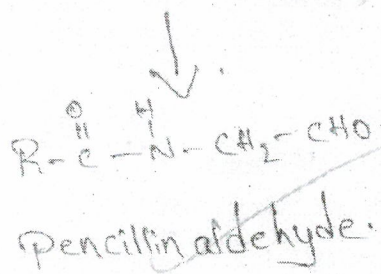 O H
R-C-N-CH₂-CHO
pencillin aldehyde.